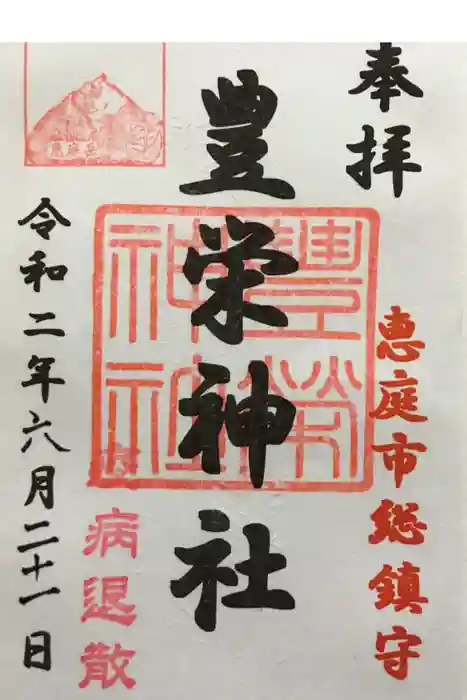 奉拝
恵庭市総鎮守
豊栄神社
豊榮神社
病退散
令和二年六月二十一日